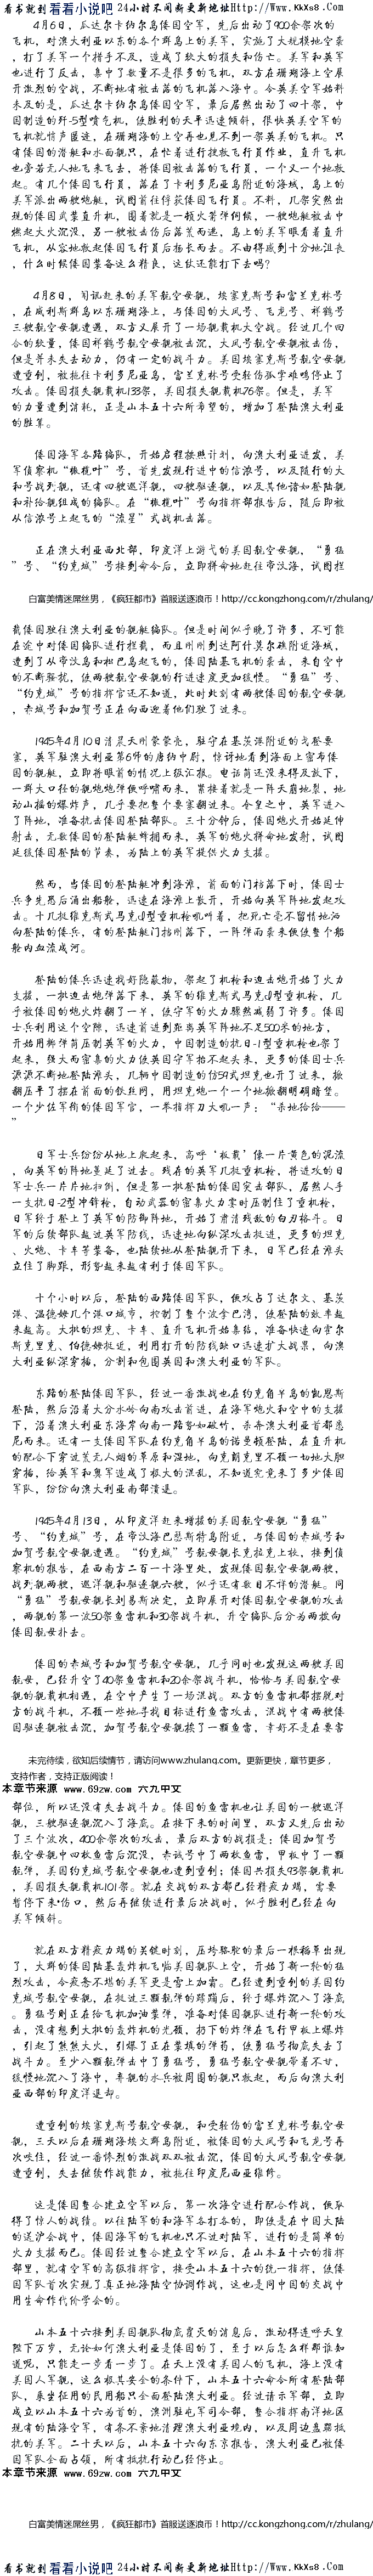 看书就到 看看小说吧 24小时不间断更新地址Http://Www.KkXs8.Com
4月6日，瓜达尔卡纳尔岛倭国空军，先后出动了900余架次的
飞机，对澳大利亚以东的各个群岛上的美军，实施了大规模地空袭
，打了美军一个措手不及，造成了较大的损失和伤亡。美军和英军
也进行了反击，集中了数量不是很多的飞机，双方在珊瑚海上空展
开激烈的空战，不断地有被击落的飞机落入海中。令英美空军始料
未及的是，瓜达尔卡纳尔岛倭国空军，最后居然出动了四十架，中
国制造的歼-5型喷气机，使胜利的天平迅速倾斜，很快英美空军的
飞机就销声匿迹，在珊瑚海的上空再也见不到一架英美的飞机。只
有倭国的潜艇和水面舰只，在忙着进行搜救飞行员作业，直升飞机
也旁若无人地飞来飞去，将倭国被击落的飞行员，一个又一个地救
起。有几个倭国飞行员，落在了卡利多尼亚岛附近的海域，岛上的
美军派出两艘炮艇，试图前往俘获倭国飞行员。不料，几架突然出
现的倭国武装直升机，围着就是一顿火箭弹伺候，一艘炮艇被击中
燃起大火沉没，另一艘被击伤后落荒而逃，岛上的美军眼看着直升
飞机，从容地救起倭国飞行员后扬长而去。不由得感到十分地沮丧
，什么时候倭国装备这么精良，这仗还能打下去吗？
4月8日，闻讯赶来的美军航空母舰，埃塞克斯号和富兰克林号
，在威利斯群岛以东珊瑚海上，与倭国的大凤号、飞龙号、祥鹤号
三艘航空母舰遭遇，双方又展开了一场舰载机大空战。经过几个回
合的较量，倭国祥鹤号航空母舰被击沉，大凤号航空母舰被击伤，
但是并未失去动力，仍有一定的战斗力。美国埃塞克斯号航空母舰
遭重创，被拖往卡利多尼亚岛，富兰克林号受轻伤孤掌难鸣停止了
攻击。倭国损失舰载机133架，美国损失舰载机76架。但是，美军
的力量遭到消耗，正是山本五十六所希望的，增加了登陆澳大利亚
的胜算。
倭国海军各路编队，开始启程按照计划，向澳大利亚进发，美
军侦察机“橄榄叶”号，首先发现行进中的信浓号，以及随行的大
和号战列舰，还有四艘巡洋舰，四艘驱逐舰，以及其他诸如登陆舰
和补给舰组成的编队。在“橄榄叶”号向指挥部报告后，随后即被
从信浓号上起飞的“流星”式战机击落。
正在澳大利亚西北部，印度洋上游弋的美国航空母舰，“勇猛
”号、“约克城”号接到命令后，立即拼命地赶往帝汶海，试图拦
白富美情迷屌丝男，《疯狂都市》首服送逐浪币！http://cc.kongzhong.com/r/zhulang/
截倭国驶往澳大利亚的舰艇编队。但是时间似乎晚了许多，不可能
在途中对倭国编队进行拦截，而且刚刚到达阿什莫尔礁附近海域，
遭到了从帝汶岛和松巴岛起飞的，倭国陆基飞机的袭击，来自空中
的不断骚扰，使两艘航空母舰的行进速度更加缓慢。“勇猛”号、
“约克城”号的指挥官还不知道，此时此刻有两艘倭国的航空母舰
，赤城号和加贺号正在向西迎着他们驶了过来。
1945年4月10日清晨天刚蒙蒙亮，驻守在基茨港附近的戈登要
塞，英军驻澳大利亚第6师的唐纳中尉，惊讶地看到海面上密布倭
国的舰艇，立即将眼前的情况上级汇报。电话筒还没来得及放下，
一群大口径的舰炮炮弹便呼啸而来，紧接着就是一阵天崩地裂，地
动山摇的爆炸声，几乎要把整个要塞翻过来。令皇之中，英军进入
了阵地，准备抗击倭国登陆部队。三十分钟后，倭国炮火开始延伸
射击，无数倭国的登陆艇蜂拥而来，英军的炮火拼命地发射，试图
延缓倭国登陆的节奏，为陆上的英军提供火力支援。
然而，当倭国的登陆艇冲到海滩，前面的门档落下时，倭国士
兵争先恐后涌出船舱，迅速在海滩上散开，开始向英军阵地发起攻
击。十几挺维克斯式马克Ⅰ型重机枪吼叫着，把死亡毫不留情地洒
向登陆的倭兵，有的登陆艇门挡刚落下，一阵弹雨袭来便使整个船
舱内血流成河。
登陆的倭兵迅速找好隐蔽物，架起了机枪和迫击炮开始了火力
支援，一批迫击炮弹落下来，英军的维克斯式马克Ⅰ型重机枪，几
乎被倭国的炮火炸翻了一半，使守军的火力骤然减弱了许多。倭国
士兵利用这个空隙，迅速前进到距离英军阵地不足500米的地方，
开始用掷弹筒压制英军的火力，中国制造的抗日-1型重机枪也架了
起来，强大而密集的火力使英国守军抬不起头来，更多的倭国士兵
源源不断地登陆滩头，几辆中国制造的仿59式坦克也开了过来，掀
翻压平了摆在首面的铁丝网，用坦克炮一个一个地掀翻明碉暗堡。
一个少佐军衔的倭国军官，一举指挥刀大吼一声：“杀地给给——
”
日军士兵纷纷从地上爬起来，高呼‘板载’像一片黄色的泥流
，向英军的阵地蔓延了过去。残存的英军几挺重机枪，将进攻的日
军士兵一片片地扫倒，但是第一批登陆的倭国突击部队，居然人手
一支抗日-2型冲锋枪，自动武器的密集火力霎时压制住了重机枪，
日军终于登上了英军的防御阵地，开始了肃清残敌的白刃格斗。日
军的后续部队越过英军防线，迅速地向纵深攻击挺进，更多的坦克
、火炮、卡车等装备，也陆续地从登陆舰开下来，日军已经在滩头
立住了脚跟，形势越来越有利于倭国军队。
十个小时以后，登陆的西路倭国军队，便攻占了达尔文、基茨
港、温德姆几个港口城市，控制了整个波拿巴湾，使登陆的效率越
来越高。大批的坦克、卡车、直升飞机开始集结，准备快速向霍尔
斯克里克、伯德姆挺近，利用打开的防线缺口迅速扩大战果，向澳
大利亚纵深穿插，分割和包围英国和澳大利亚的军队。
东路的登陆倭国军队，经过一番激战也在约克角半岛的凯恩斯
登陆，然后沿着大分水岭向南攻击首进，在海军炮火和空中的支援
下，沿着澳大利亚东海岸向南一路势如破竹，杀奔澳大利亚首都悉
尼而来。还有一支倭国军队在约克角半岛的诺曼顿登陆，在直升机
的配合下穿过荒无人烟的草原和湿地，向克朗克里不顾一切地大胆
穿插，给英军和奥军造成了极大的混乱，不知道究竟来了多少倭国
军队，纷纷向澳大利亚南部溃退。
1945年4月13日，从印度洋赶来增援的美国航空母舰“勇猛”
号、“约克城”号，在帝汶海巴瑟斯特岛附近，与倭国的赤城号和
加贺号航空母舰遭遇。“约克城”号航空母舰长克拉克上校，接到侦
察机的报告，在西南方二百一十海里处，发现倭国航空母舰两艘，
战列舰两艘，巡洋舰和驱逐舰六艘，似乎还有数目不祥的潜艇。同
“勇猛”号航母舰长刘易斯决定，立即展开对倭国航空母舰的攻击
，两舰的第一波50架鱼雷机和30架战斗机，升空编队后分为两拨向
倭国航母扑去。
倭国的赤城号和加贺号航空母舰，几乎同时也发现这两艘美国
航母，已经升空了40架鱼雷机和20余架战斗机，恰恰与美国航空母
舰的舰载机相遇，在空中产生了一场混战。双方的鱼雷机都摆脱对
方的战斗机，不顾一些地寻找目标进行鱼雷攻击，混战中有两艘倭
国驱逐舰被击沉，加贺号航空母舰挨了一颗鱼雷，幸好不是在要害
未完待续，欲知后续情节，请访问www.zhulang.com。更新更快，章节更多，
支持作者，支持正版阅读！
本章节来源 www.69zw.com 六九中文
部位，所以还没有失去战斗力。倭国的鱼雷机也让美国的一艘巡洋
舰，三艘驱逐舰沉入了海底。在接下来的时间里，双方又先后出动
了三个波次，400余架次的攻击，最后双方的战损是：倭国加贺号
航空母舰中四枚鱼雷后沉没，赤诚号中了两枚鱼雷，甲板中了一颗
航弹，美国约克城号航空母舰也遭到重创；倭国共损失93架舰载机
，美国损失舰载机101架。就在交战的双方都已经精疲力竭，需要
暂停下来*伤口，然后再继续进行最后决战时，似乎胜利已经在向
美军倾斜。
就在双方精疲力竭的关键时刻，压垮骆驼的最后一根稻草出现
了，大群的倭国陆基轰炸机飞临美国舰队上空，开始了新一轮的猛
烈攻击，令疲惫不堪的美军更是雪上加霜。已经遭到重创的美国约
克城号航空母舰，在挨过三颗航弹的蹂躏后，终于爆炸沉入了海底
。勇猛号则正在给飞机加油装弹，准备对倭国舰队进行新一轮的攻
击，没有想到大批的轰炸机的光顾，扔下的炸弹在飞行甲板上爆炸
，引起了熊熊大火，引爆了正在装填的弹药，使勇猛号彻底失去了
战斗力。至少八颗航弹击中了勇猛号，勇猛号航空母舰带着不甘，
缓慢地沉入了海中，弃舰的水兵被周围的舰只救起，而后向澳大利
亚西部的印度洋退却。
遭重创的埃塞克斯号航空母舰，和受轻伤的富兰克林号航空母
舰，三天以后在珊瑚海埃文群岛附近，被倭国的大凤号和飞龙号再
次咬住，经过一番惨烈的激战双双被击沉，倭国的大凤号航空母舰
遭重创，失去继续作战能力，被拖往印度尼西亚维修。
这是倭国整合建立空军以后，第一次海空进行配合作战，便取
得了惊人的战绩。以往陆军的和海军各打各的，即使是在中国大陆
的淞沪会战中，倭国海军的飞机也只不过对陆军，进行的是简单的
火力支援而已。倭国经过整合建立空军以后，在山本五十六的指挥
部里，就有空军的高级指挥官，接受山本五十六的统一指挥，使倭
国军队首次实现了真正地海陆空协调作战，这也是同中国的交战中
用生命作代价学会的。
山本五十六接到美国舰队彻底覆灭的消息后，激动得连呼天皇
陛下万岁，无论如何澳大利亚是倭国的了，至于以后怎么样那谁知
道呢，只能走一步看一步了。在天上没有美国人的飞机，海上没有
美国人军舰，这么极其安全的条件下，山本五十六命令所有登陆部
队，乘坐征用的民用船只全面登陆澳大利亚。经过请示军部，立即
成立以山本五十六为首的，澳洲驻屯军司令部，整合指挥南洋地区
现有的陆海空军，有条不紊地清理澳大利亚境内，以及周边岛礁抵
抗的美军。二十天以后，山本五十六向东京报告，澳大利亚已被倭
国军队全面占领，所有抵抗行动已经停止。
本章节来源 www.69zw.com 六九中文
白富美情迷屌丝男，《疯狂都市》首服送逐浪币！http://cc.kongzhong.com/r/zhulang/
看书就到 看看小说吧 24小时不间断更新地址Http://Www.KkXs8.Com